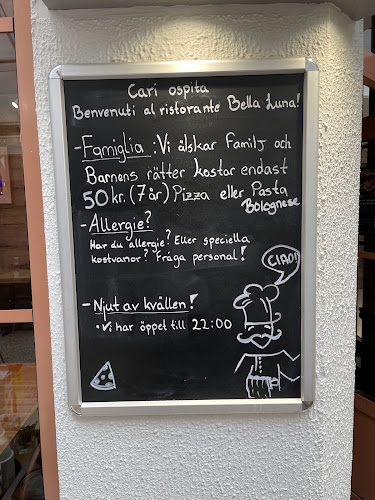 Cari ospita
Benvenuti al ristorante Bella Luna!
- Famiglia : Vi älskar Familj och
Barnens rätter kostar endast
50 kr. (7 år) Pizza eller Pasta
Bolognese
- Allergie?
Har du allergie? Eller speciella
kostvanor? Fråga personal!
CIAO!
- Njut av kvällen!
• Vi har öppet till 22:00